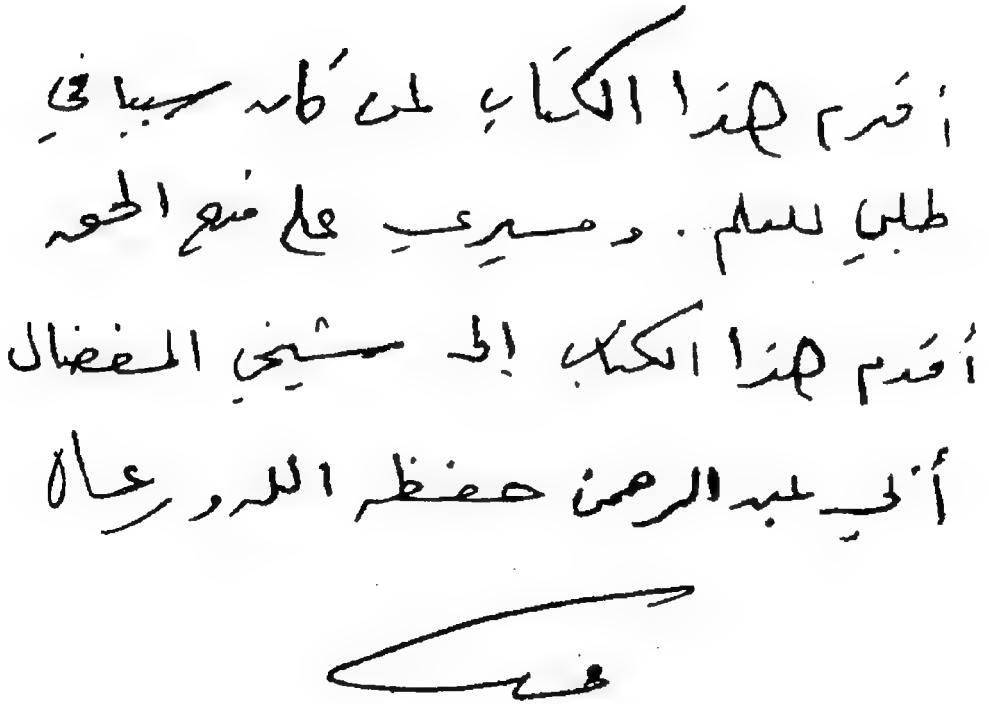 أقدم هذا الكتاب لمن كان سببا في
طلبي للعلم . ومسيري على منهج الحق
أقدم هذا الكتاب إلى شيخي المفضال
أبي عبد الرحمن حفظه الله ورعاه